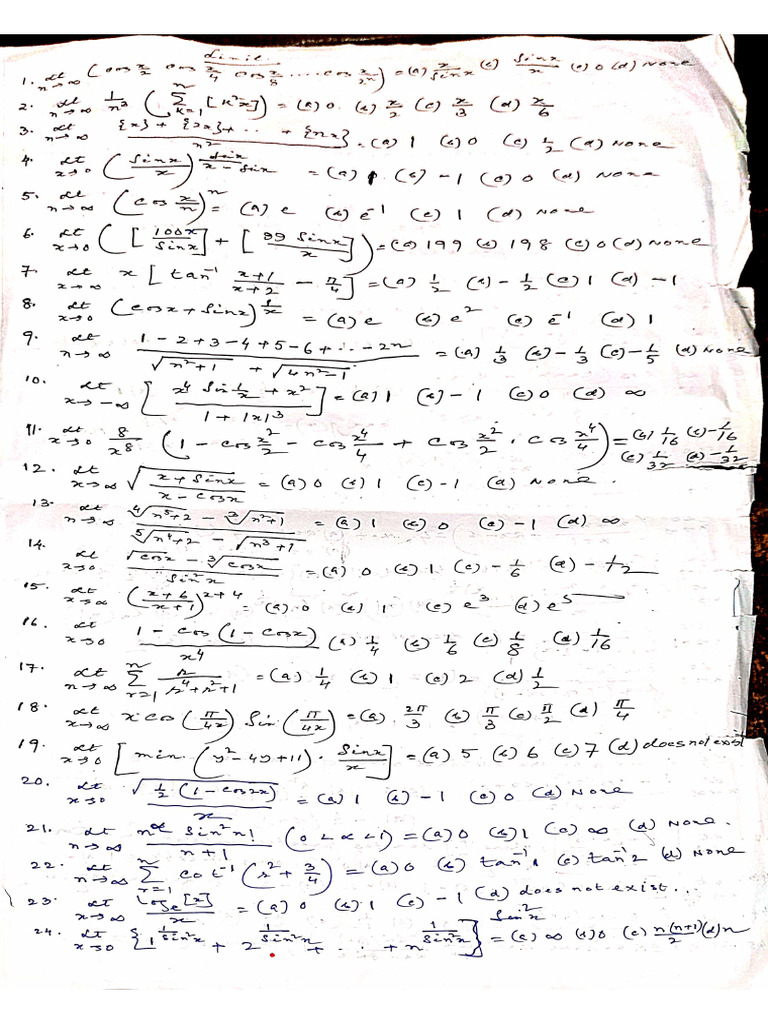 Limit
1. Lt n→∞ (cos x/2 cos x/4 cos x/8 .... cos x/2^n) = (a) x/sinx (b) sinx/x (c) 0 (d) None
2. Lt n→∞ 1/n³ (Σ_{k=1}^{n} [k²x]) = (a) 0 (b) x/2 (c) x/3 (d) x/6
3. Lt n→∞ ({x} + {2x} + ... + {nx})/n² = (a) 1 (b) 0 (c) 1/2 (d) None
4. Lt x→0 (sinx/x)^(sinx/(x - sinx)) = (a) 1 (b) -1 (c) 0 (d) None
5. Lt n→∞ (cos x/n)^n = (a) e (b) e^-1 (c) 1 (d) None
6. Lt x→0 ([100x/sinx] + [99 sinx/x]) = (a) 199 (b) 198 (c) 0 (d) None
7. Lt x→∞ x [tan^-1 (x+1)/(x+2) - π/4] = (a) 1/2 (b) -1/2 (c) 1 (d) -1
8. Lt x→0 (cosx + sinx)^(1/x) = (a) e (b) e² (c) e^-1 (d) 1
9. Lt n→∞ (1-2+3-4+5-6+...-2n)/(√(n²+1) + √(4n²-1)) = (a) 1/3 (b) -1/3 (c) -1/5 (d) None
10. Lt x→-∞ [(x⁴ sin 1/x + x²)/(1+|x|³)] = (a) 1 (b) -1 (c) 0 (d) ∞
11. Lt x→0 8/x⁸ (1 - cos x²/2 - cos x⁴/4 + cos x²/2 . cos x⁴/4) = (a) 1/16 (b) -1/16 (c) 1/32 (d) -1/32
12. Lt x→∞ √((x + sinx)/(x - cosx)) = (a) 0 (b) 1 (c) -1 (d) None.
13. Lt n→∞ (⁴√(n⁵+2) - ³√(n²+1))/(⁵√(n⁴+2) - √(n³+1)) = (a) 1 (b) 0 (c) -1 (d) ∞
14. Lt x→0 (√cosx - ³√cosx)/sin²x = (a) 0 (b) 1 (c) -1/6 (d) -1/12
15. Lt x→∞ ((x+6)/(x+1))^(x+4) = (a) 0 (b) 1 (c) e³ (d) e⁵
16. Lt x→0 (1 - cos(1 - cosx))/x⁴ (a) 1/4 (b) 1/6 (c) 1/8 (d) 1/16
17. Lt n→∞ Σ_{r=1}^{n} r/(r⁴+r²+1) = (a) 1/4 (b) 1 (c) 2 (d) 1/2
18. Lt x→∞ x cos(π/4x) sin(π/4x) = (a) 2π/3 (b) π/3 (c) π/2 (d) π/4
19. Lt x→0 [min. (y² - 4y + 11) . sinx/x] = (a) 5 (b) 6 (c) 7 (d) does not exist
20. Lt x→0 √(1/2 (1 - cos2x))/x = (a) 1 (b) -1 (c) 0 (d) None
21. Lt n→∞ n^α sin²n!/(n+1) (0 < α < 1) = (a) 0 (b) 1 (c) ∞ (d) None.
22. Lt n→∞ Σ_{r=1}^{n} cot^-1 (r² + 3/4) = (a) 0 (b) tan^-1 1 (c) tan^-1 2 (d) None
23. Lt x→∞ log_e [x]/x = (a) 0 (b) 1 (c) -1 (d) does not exist...
24. Lt x→0 {1^(1/sin²x) + 2^(1/sin²x) + ... + n^(1/sin²x)}^(sin²x) = (a) ∞ (b) 0 (c) n(n+1)/2 (d) n